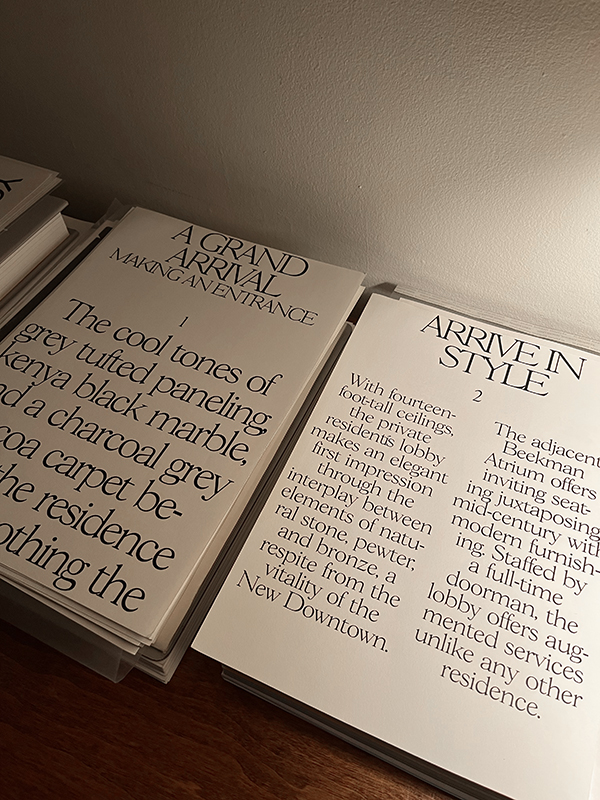 A GRAND
ARRIVAL
MAKING AN ENTRANCE
1
The cool tones of
grey tufted paneling,
kenya black marble,
nd a charcoal grey
coa carpet be-
the residence
othing the
ARRIVE IN
STYLE
2
With fourteen-
foot-tall ceilings,
the private
resident's lobby
makes an elegant
first impression
through the
interplay between
elements of natu-
ral stone, pewter,
and bronze, a
respite from the
vitality of the
New Downtown.
The adjacent
Beekman
Atrium offers
inviting seat-
ing juxtaposing
mid-century with
modern furnish-
ing. Staffed by
a full-time
doorman, the
lobby offers aug-
mented services
unlike any other
residence.